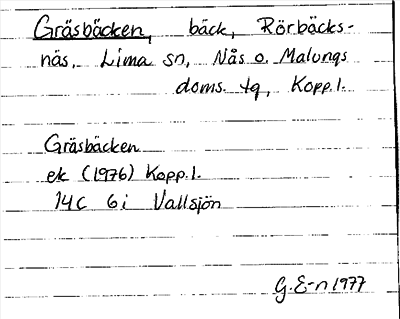 Gräsbäcken, bäck, Rörbäcks-
näs, Lima sn, Nås o. Malungs
doms. tg, Kopp.l.
Gräsbäcken
ek (1976) Kopp.l.
14C 6i Vallsjön
G.E-n 1977